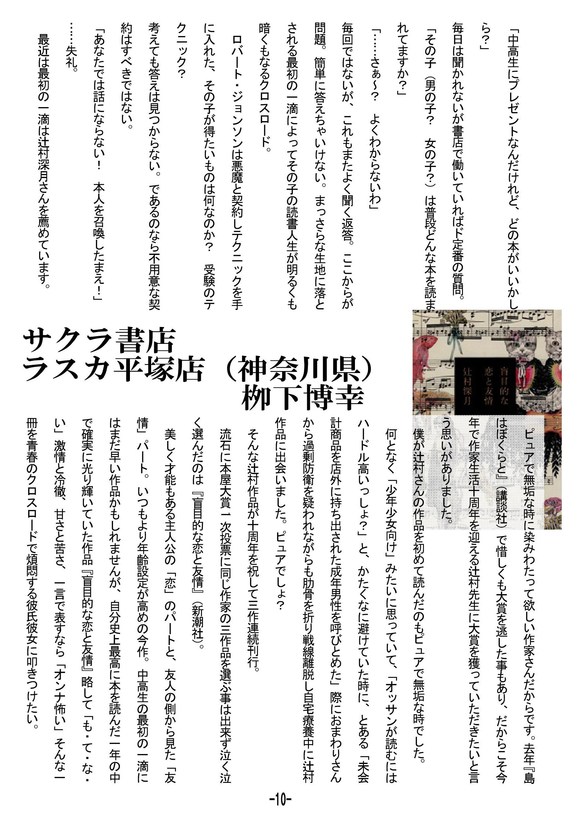 「中高生にプレゼントなんだけれど、どの本がいいかし
ら？」
毎日は聞かれないが書店で働いていればド定番の質問。
「その子（男の子？　女の子？）は普段どんな本を読ま
れてますか？」
「……さぁ～？　よくわからないわ」
毎回ではないが、これもまたよく聞く返答。ここからが
問題。簡単に答えちゃいけない。まっさらな生地に落と
される最初の一滴によってその子の読書人生が明るくも
暗くもなるクロスロード。
ロバート・ジョンソンは悪魔と契約しテクニックを手
に入れた、その子が得たいものは何なのか？　受験のテ
クニック？
考えても答えは見つからない。であるのなら不用意な契
約はすべきではない。
「あなたでは話にならない！　本人を召喚したまえ！」
……失礼。
最近は最初の一滴は辻村深月さんを薦めています。
盲目的な
恋と友情
辻村深月
サクラ書店
ラスカ平塚店（神奈川県）
栁下博幸
ピュアで無垢な時に染みわたって欲しい作家さんだからです。去年『島
はぼくらと』（講談社）で惜しくも大賞を逃した事もあり、だからこそ今
年で作家生活十周年を迎える辻村先生に大賞を獲っていただきたいと言
う思いがありました。
僕が辻村さんの作品を初めて読んだのもピュアで無垢な時でした。
何となく「少年少女向け」みたいに思っていて、「オッサンが読むには
ハードル高いっしょ？」と、かたくなに避けていた時に、とある「未会
計商品を店外に持ち出された成年男性を呼びとめた」際におまわりさん
から過剰防衛を疑われながらも肋骨を折り戦線離脱し自宅療養中に辻村
作品に出会いました。ピュアでしょ？
そんな辻村作品が十周年を祝して三作連続刊行。
流石に本屋大賞一次投票に同じ作家の三作品を選ぶ事は出来ず泣く泣
く選んだのは『盲目的な恋と友情』（新潮社）。
美しく才能もある主人公の「恋」のパートと、友人の側から見た「友
情」パート。いつもより年齢設定が高めの今作。中高生の最初の一滴に
はまだ早い作品かもしれませんが、自分史上最高に本を読んだ一年の中
で確実に光り輝いていた作品『盲目的な恋と友情』略して「も・て・な・
い」激情と冷徹、甘さと苦さ、一言で表すなら「オンナ怖い」そんな一
冊を青春のクロスロードで煩悶する彼氏彼女に叩きつけたい。
-10-